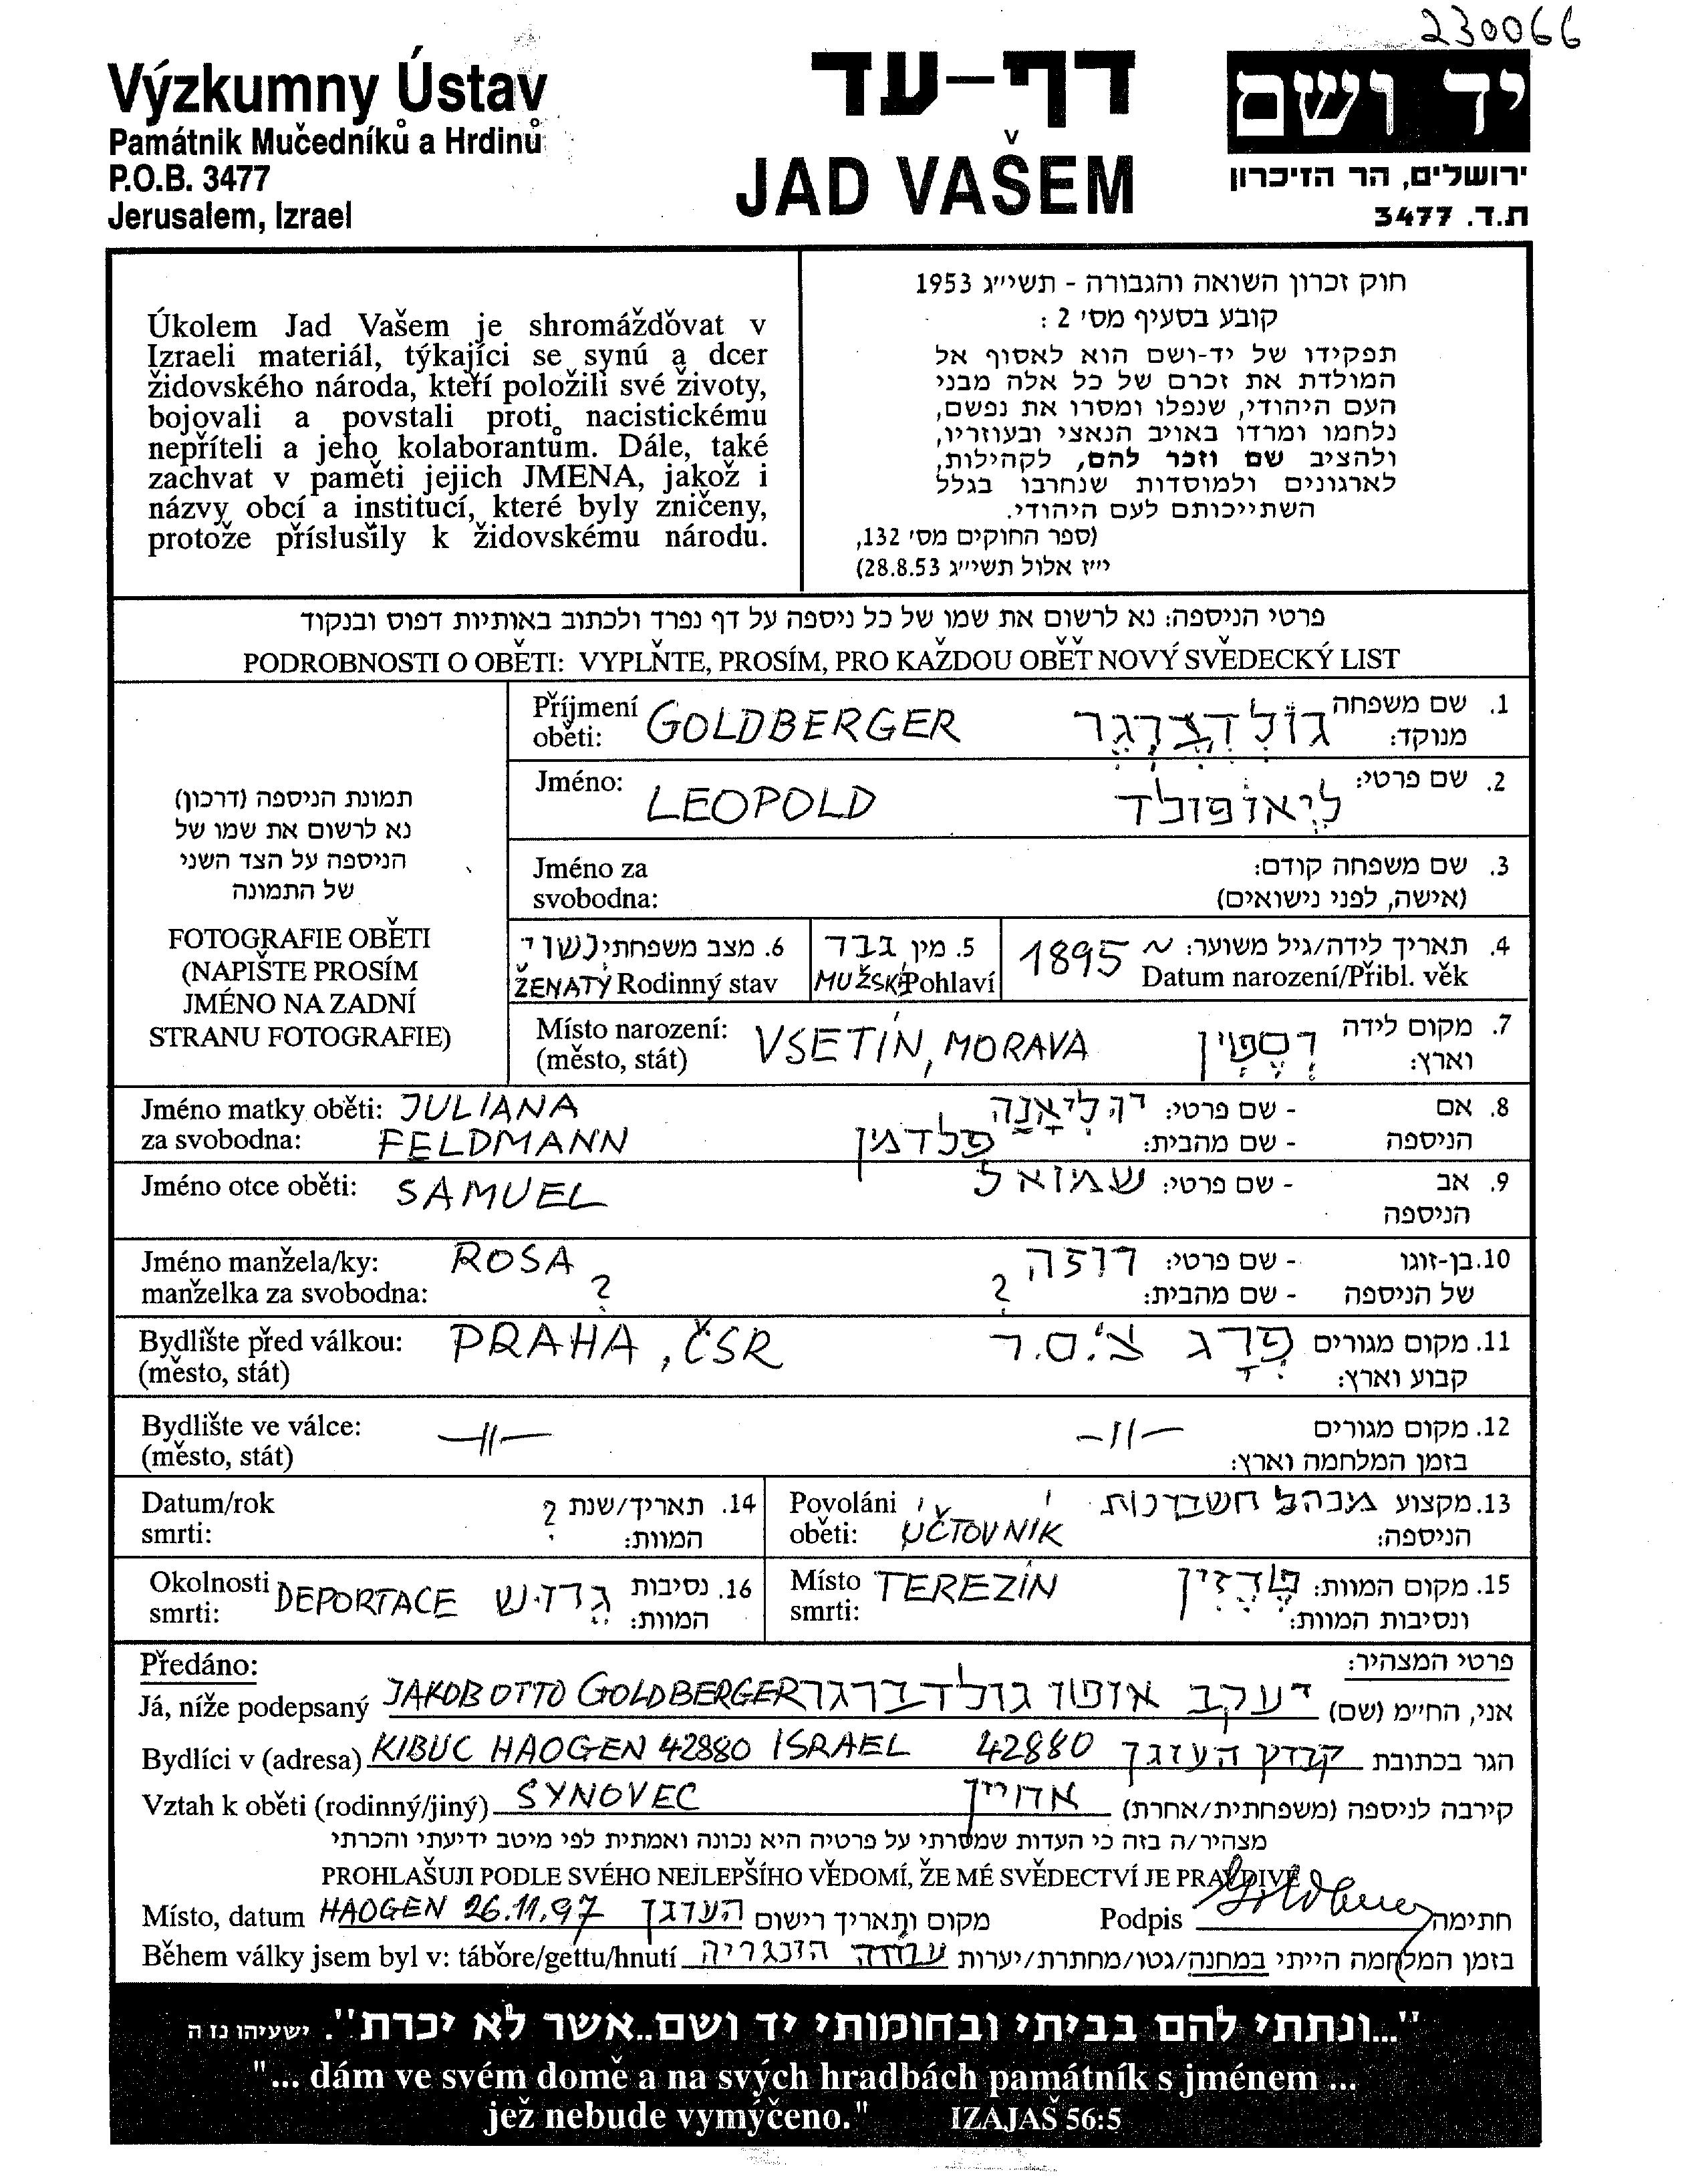 230066
Výzkumny Ústav
Památnik Mučedníků a Hrdinů
P.O.B. 3477
Jerusalem, Izrael
דף-עד
JAD VAŠEM
יד ושם
ירושלים, הר הזיכרון
ת.ד. 3477
Úkolem Jad Vašem je shromáždǒvat v
Izraeli materiál, týkajíci se synú a dcer
židovského národa, kteří položili své životy,
bojovali a povstali proti nacistickému
nepříteli a jeho kolaborantům. Dále, také
zachvat v paměti jejich JMENA, jakož i
názvy obcí a institucí, které byly zničeny,
protože příslusǐly k židovskému národu.
חוק זכרון השואה והגבורה - תשי״ג 1953
קובע בסעיף מס׳ 2 :
תפקידו של יד-ושם הוא לאסוף אל
המולדת את זכרם של כל אלה מבני
העם היהודי, שנפלו ומסרו את נפשם,
נלחמו ומרדו באויב הנאצי ובעוזריו,
ולהציב שם וזכר להם, לקהילות,
לארגונים ולמוסדות שנחרבו בגלל
השתייכותם לעם היהודי.
(ספר החוקים מס׳ 132,
י״ז אלול תשי״ג 28.8.53)
פרטי הניספה: נא לרשום את שמו של כל ניספה על דף נפרד ולכתוב באותיות דפוס ובנקוד
PODROBNOSTI O OBĚTI: VYPLŇTE, PROSÍM, PRO KAŽDOU OBĚŤ NOVÝ SVĚDECKÝ LIST
תמונת הניספה (דרכון)
נא לרשום את שמו של
הניספה על הצד השני
של התמונה
FOTOGRAFIE OBĚTI
(NAPIŠTE PROSÍM
JMÉNO NA ZADNÍ
STRANU FOTOGRAFIE)
Příjmení oběti: GOLDBERGER גולדברגר 1. שם משפחה מנוקד:
Jméno: LEOPOLD ליאופולד 2. שם פרטי:
Jméno za svobodna: 3. שם משפחה קודם: (אישה, לפני נישואים)
6. מצב משפחתי נשוי ŽENATÝ Rodinný stav
5. מין גבר MUŽSKÉ Pohlaví
4. תאריך לידה/גיל משוער: ~ 1895 Datum narození/Přibl. věk
Místo narození: (město, stát) VSETÍN, MORAVA וסטין 7. מקום לידה וארץ:
Jméno matky oběti: JULIANA יוליאנה 8. אם - שם פרטי:
za svobodna: FELDMANN פלדמן הניספה - שם מהבית:
Jméno otce oběti: SAMUEL שמואל 9. אב הניספה - שם פרטי:
Jméno manžela/ky: ROSA רוזה 10. בן-זוגו - שם פרטי:
manželka za svobodna: ? ? של הניספה - שם מהבית:
Bydlište před válkou: (město, stát) PRAHA, ČSR פרג צ'.ס.ר 11. מקום מגורים קבוע וארץ:
Bydlište ve válce: (město, stát) —11— —11— 12. מקום מגורים בזמן המלחמה וארץ:
Datum/rok smrti: ? 14. תאריך/שנת המוות:
Povoláni oběti: ÚČTOVNÍK מנהל חשבונות 13. מקצוע הניספה:
Okolnosti smrti: DEPORTACE גרוש 16. נסיבות המוות:
Místo smrti: TEREZÍN טרזין 15. מקום המוות: ונסיבות המוות:
Předáno: פרטי המצהיר:
Já, níže podepsaný JAKOB OTTO GOLDBERGER יעקב אוטו גולדברגר אני, החי״מ (שם)
Bydlíci v (adresa) KIBUC HAOGEN 42880 ISRAEL 42880 קבוץ העוגן הגר בכתובת
Vztah k oběti (rodinný/jiný) SYNOVEC אחיין קירבה לניספה (משפחתית/אחרת)
מצהיר/ה בזה כי העדות שמסרתי על פרטיה היא נכונה ואמתית לפי מיטב ידיעתי והכרתי
PROHLAŠUJI PODLE SVÉHO NEJLEPŠÍHO VĚDOMÍ, ŽE MÉ SVĚDECTVÍ JE PRAVDIVÉ
Místo, datum HAOGEN 26.11.97 העוגן מקום ותאריך רישום Podpis Goldberger חתימה
Během války jsem byl v: táboře/gettu/hnutí עבודה הונגריה בזמן המלחמה הייתי במחנה/גטו/מחתרת/יערות
"...ונתתי להם בביתי ובחומותי יד ושם..אשר לא יכרת". ישעיהו נו ה
"... dám ve svém domě a na svých hradbách památník s jménem ...
jež nebude vymýčeno." IZAJAŠ 56:5